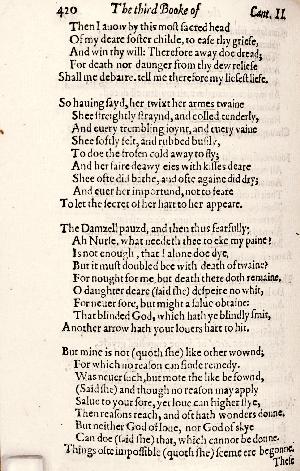 420 The third Booke of Cant. II.
Then I auow by this most sacred head
Of my deare foster childe, to ease thy griefe,
And win thy will: Therefore away doe dread;
For death nor daunger from thy dew reliefe
Shall me debarre. tell me therefore my liefest liefe.
So hauing sayd, her twixt her armes twaine
Shee streightly straynd, and colled tenderly,
And euery trembling ioynt, and euery vaine
Shee softly felt, and rubbed busily,
To doe the frosen cold away to fly;
And her faire deawy eies with kisses deare
Shee ofte did bathe, and ofte againe did dry;
And euer her importund, not to feare
To let the secret of her hart to her appeare.
The Damzell pauzd, and then thus fearfully;
Ah Nurse, what needeth thee to eke my paine?
Is not enough, that I alone doe dye,
But it must doubled bee with death of twaine?
For nought for me, but death there doth remaine,
O daughter deare (said she) despeire no whit,
For neuer sore, but might a salue obtaine:
That blinded God, which hath ye blindly smit,
Another arrow hath your louers hart to hit.
But mine is not (quoth she) like other wownd;
For which no reason can finde remedy.
Was neuer such, but mote the like be fownd,
(Said she) and though no reason may apply
Salue to your sore, yet loue can higher stye,
Then reasons reach, and oft hath wonders donne.
But neither God of loue, nor God of skye
Can doe (said she) that, which cannot be donne.
Things ofte impossible (quoth she) seeme ere begonne.
These